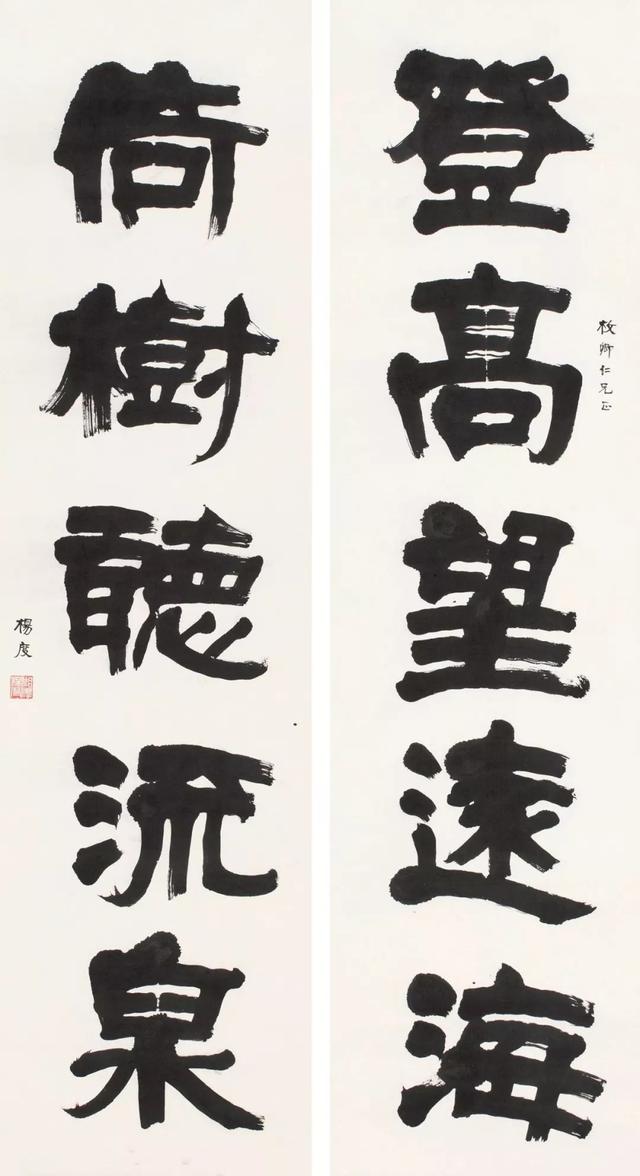 枚卿仁兄正
登高望遠海
倚樹聽流泉
楊度